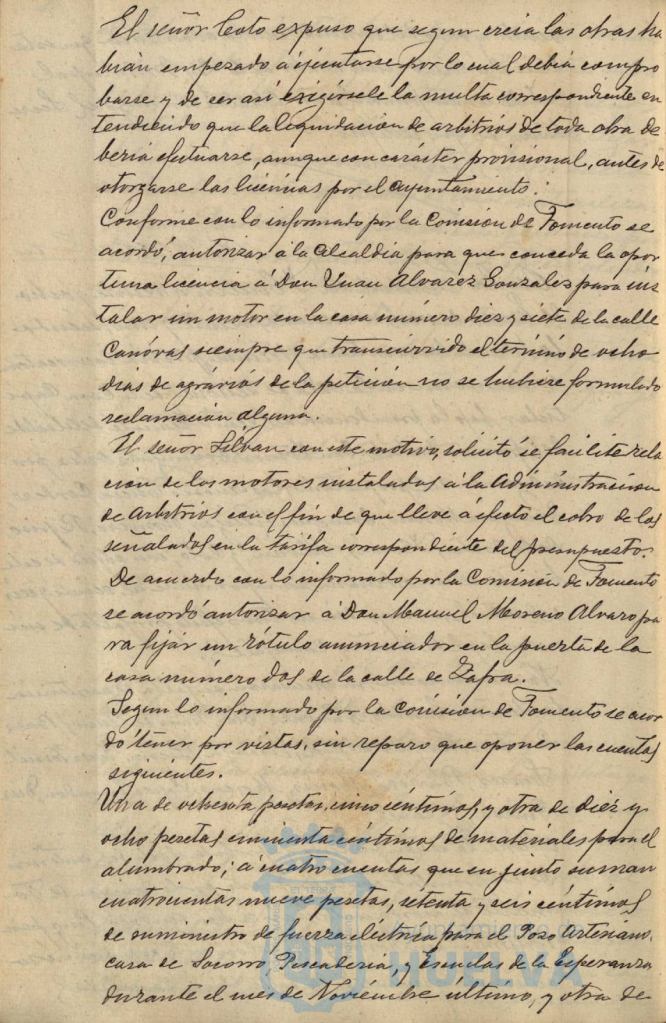 El señor Coto expuso que segun creia las obras ha
bian empezado á ejecutarse por lo cual debia compro
barse y de ser asi exigirsele la multa correspondiente en
tendiendo que la liquidacion de arbitrios de toda obra de
beria efectuarse, aunque con carácter provisional, antes de
otorgarse las licencias por el Ayuntamiento.
Conforme con lo informado por la Comision de Fomento se
acordó, autorizar á la Alcaldia para que conceda la opor
tuna licencia á Don Juan Alvarez Gonzalez para ins
talar un motor en la casa número diez y siete de la calle
Canóvas siempre que transcurrido el término de ocho
dias de agrávios de la petición no se hubiere formulado
reclamacion alguna.
El señor Silban con este motivo, solicitó se facilite rela
cion de los motores instalados á la Administracion
de Arbitrios con el fin de que lleve á efecto el cobro de los
señalados en la tarifa correspondiente del presupuesto.
De acuerdo con lo informado por la Comisión de Fomento
se acordó autorizar á Don Manuel Moreno Alvaro pa
ra fijar un rótulo anunciador en la puerta de la
casa número dos de la calle de Zafra.
Segun lo informado por la Comision de Fomento se acor
dó tener por vistas, sin reparo que oponer las cuentas
siguientes.
Una de ochenta pesetas, cinco céntimos, y otra de diez y
ocho pesetas cincuenta céntimos de materiales para el
alumbrado; á cuatro cuentas que en junto suman
cuatrocientas nueve pesetas, setenta y seis céntimos
de suministro de fuerza eléctrica para el Pozo Artesiano,
casa de Socorro, Pescaderia, y Escuelas de la Esperanza
durante el mes de Noviembre último, y otra de
HUELVA